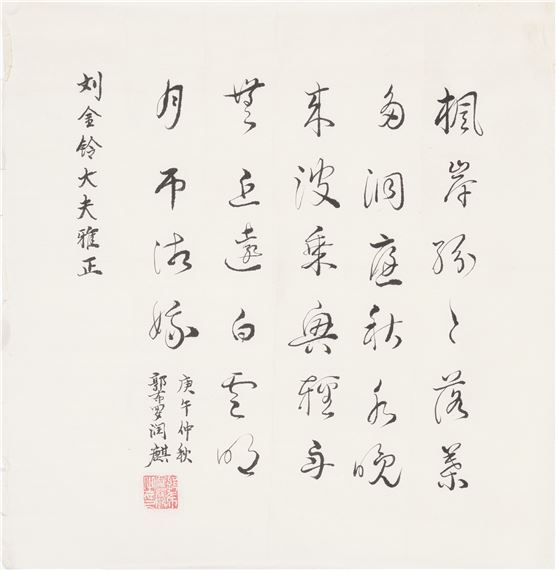 楓岸紛〻落葉
多洞庭秋水晚
来波乘興輕舟
無近遠白雲明
月吊湘娥
庚午仲秋
郭布罗润麒
刘金铃大夫雅正